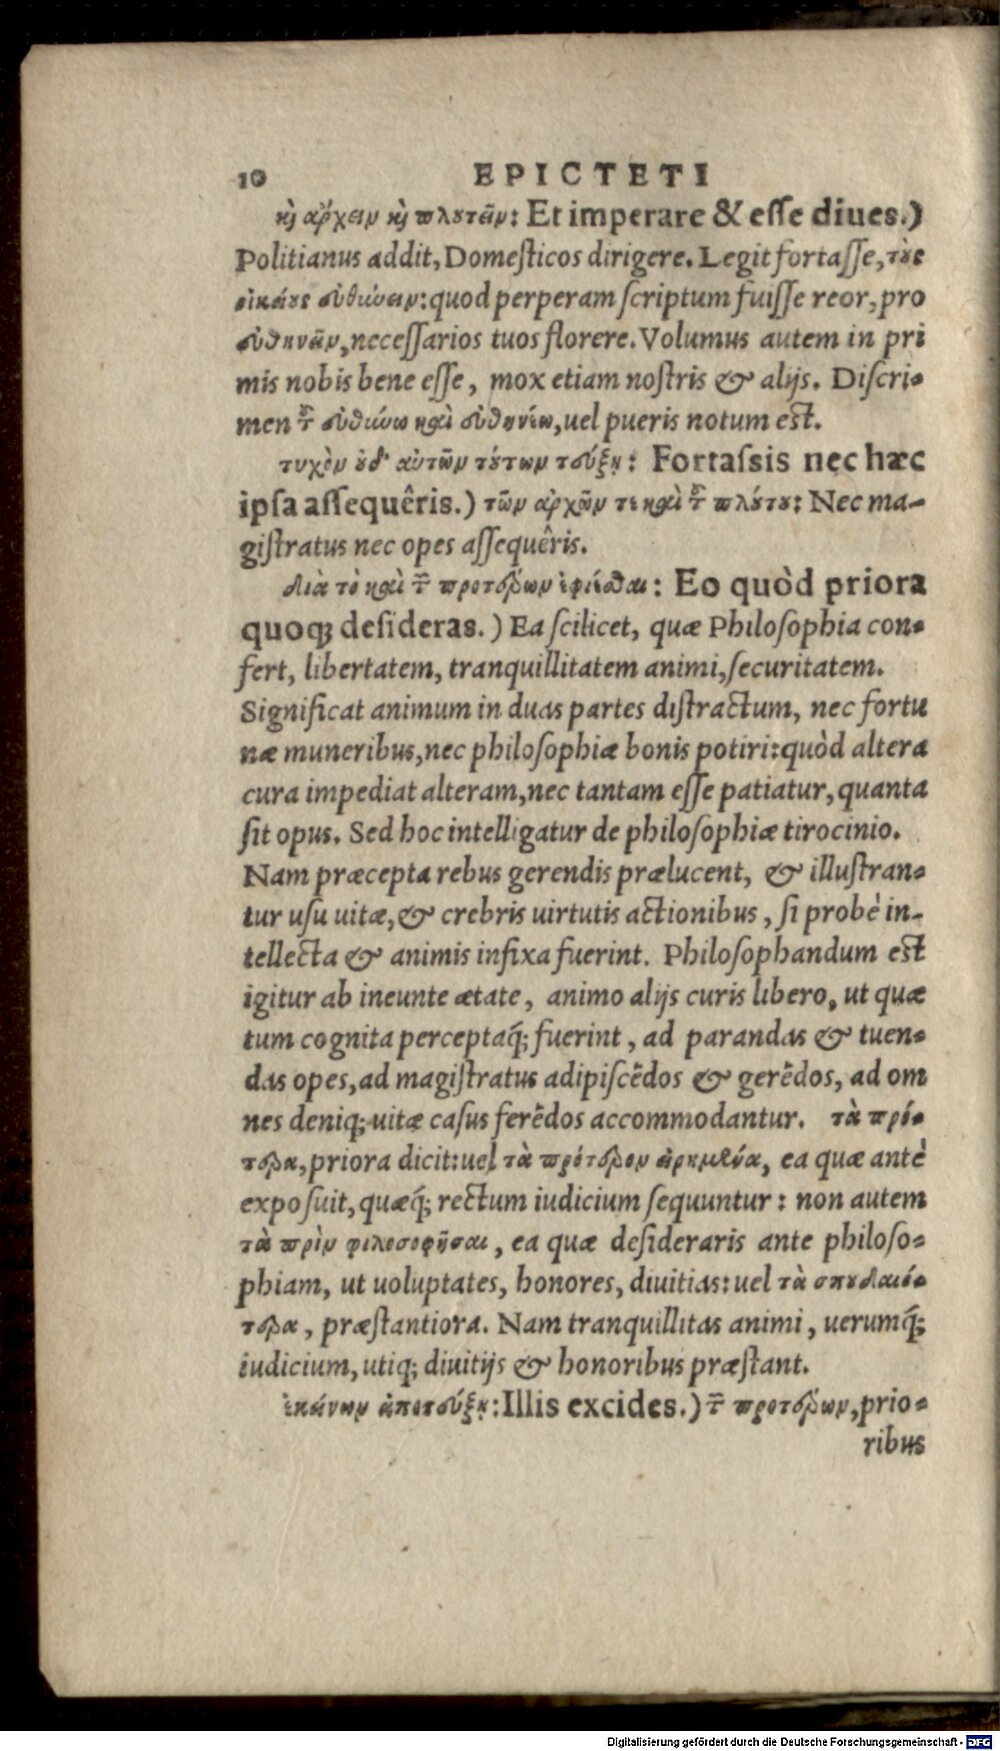 10 EPICTETI
κ̀ ἄρχειν κ̀ πλουτεῖν: Et imperare & eſſe diues.)
Politianus addit, Domeſticos dirigere. Legit fortaſſe, τοὺς
οἰκείους εὐθύνειν: quod perperam ſcriptum fuiſſe reor, pro
εὐθηνεῖν, neceſſarios tuos florere. Volumus autem in pri
mis nobis bene eſſe, mox etiam noſtris & alijs. Diſcri-
men τ͂ εὐθύνω καὶ εὐθηνέω, uel pueris notum est.
τυχὸν οὐδ' αὐτῶν τούτων τεύξῃ: Fortaſsis nec hæc
ipſa aſſequêris.) τῶν ἀρχῶν τε καὶ τ͂ πλούτου: Nec ma-
giſtratus nec opes aſſequêris.
διὰ τὸ καὶ τ͂ προτέρων ἐφίεσθαι: Eo quòd priora
quoq; deſideras.) Ea ſcilicet, quæ Philoſophia con-
fert, libertatem, tranquillitatem animi, ſecuritatem.
Significat animum in duas partes diſtractum, nec fortu
næ muneribus, nec philoſophiæ bonis potiri: quòd altera
cura impediat alteram, nec tantam eſſe patiatur, quanta
ſit opus. Sed hoc intelligatur de philoſophiæ tirocinio.
Nam præcepta rebus gerendis prælucent, & illuſtran-
tur uſu uitæ, & crebris uirtutis actionibus, ſi probè in-
tellecta & animis infixa fuerint. Philoſophandum est
igitur ab ineunte ætate, animo alijs curis libero, ut quæ
tum cognita perceptaq́; fuerint, ad parandas & tuen-
das opes, ad magiſtratus adipiſcēdos & gerēdos, ad om
nes deniq; uitæ caſus ferēdos accommodantur. τὰ πρό-
τερα, priora dicit: uel τὰ πρότερον εἰρημένα, ea quæ antè
expoſuit, quæq́; rectum iudicium ſequuntur: non autem
τὰ πρὶν φιλοσοφῆσαι, ea quæ deſideraris ante philoſo-
phiam, ut uoluptates, honores, diuitias: uel τὰ σπουδαιό-
τερα, præſtantiora. Nam tranquillitas animi, uerumq́;
iudicium, utiq; diuitijs & honoribus præſtant.
ἐκείνων ἀποτεύξῃ: Illis excides.) τ͂ προτέρων, prio-
ribus
Digitalisierung gefördert durch die Deutsche Forschungsgemeinschaft - DFG